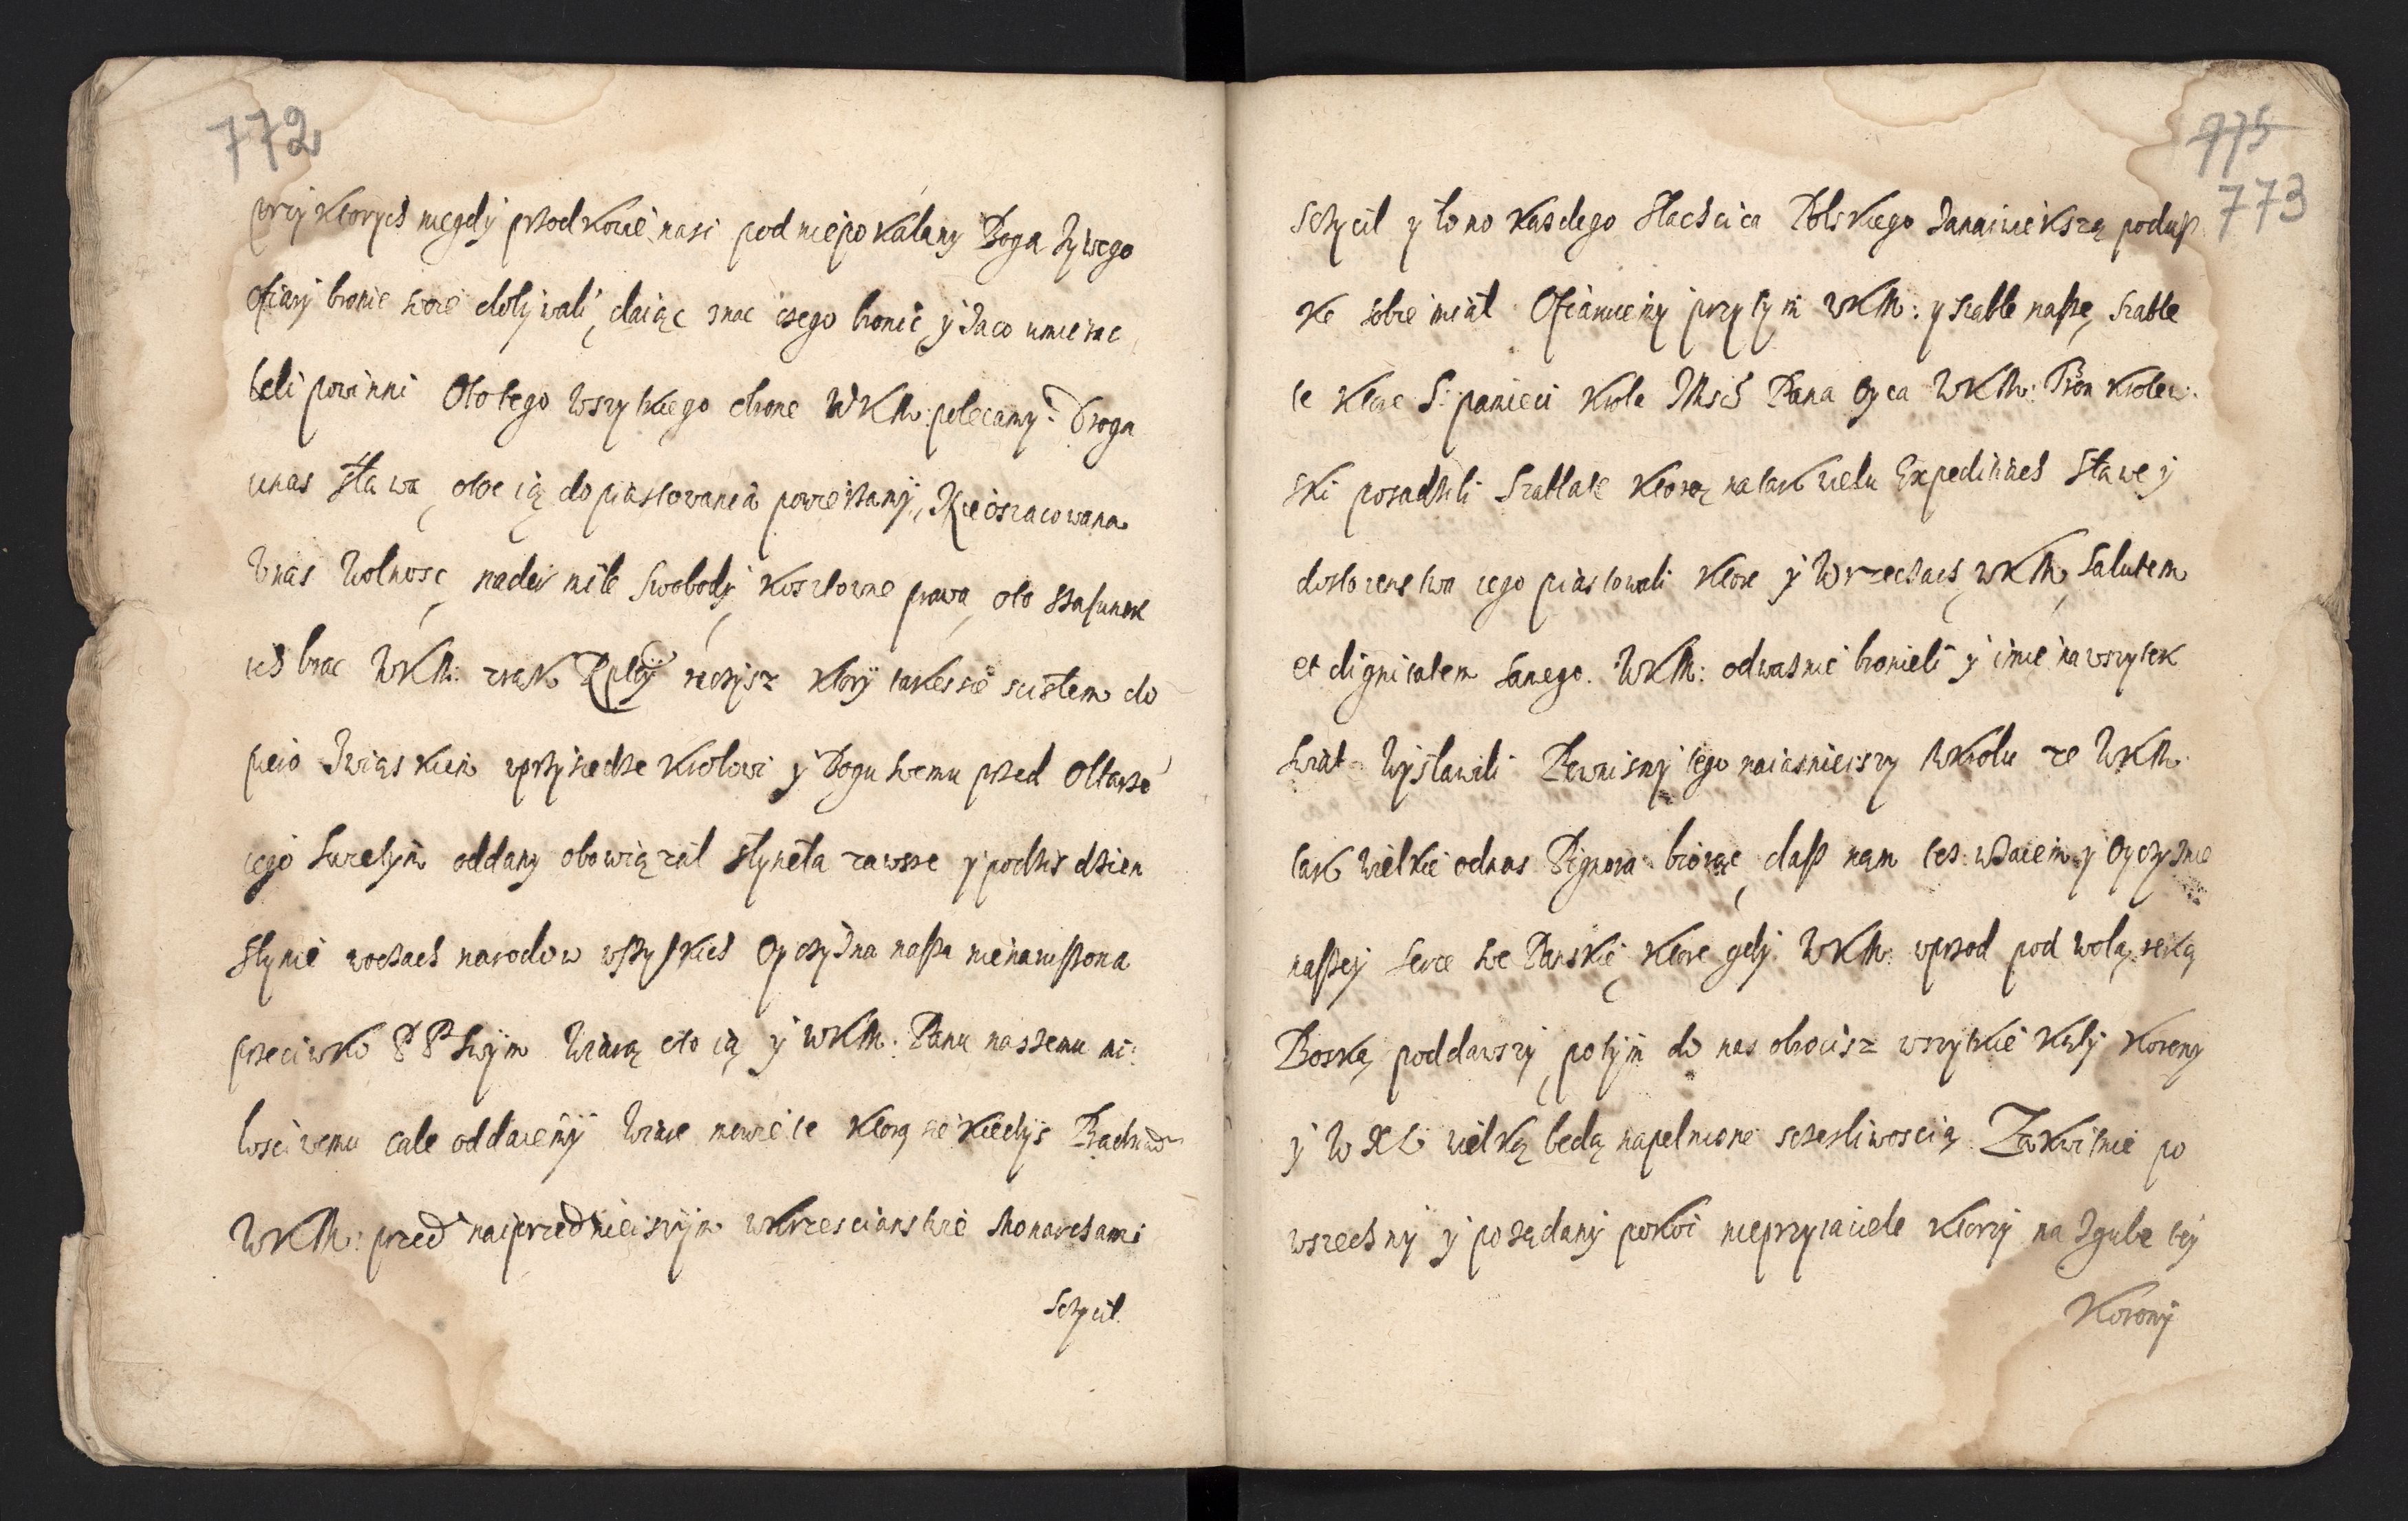 772
przy ktorych niegdy przodkowie nasi pod niepokalany Boga zywego
ofiary bronie swoie dobywali, daiąc znac czego bronic y zaco umierac
beli powinni Oto tego wszytkiego obrone WKM: polecamy. Droga
unas sława, otoc ią do piastowania powierzamy, Nieoszacowana
Unas Wolnosc, nader miłe swobody, kosztowne prawa, oto szafunek
ich brac WKM: zrąk Rptey raczysz ktory takes sie scisłem do
niego Związkiem uprzysiedze krolowi y Bogu swemu przed Ołtarze
iego swetym oddany obowiązał słyneła zawsze y podzis dzien
słynie woczach narodow wszyskich Oyczyzna nasza nienaruszona
przeciwko PP swym Wiarą oto ią y WKM: Panu naszemu mi:
łosciwemu cale oddaiemy Wiare mowie te ktorą sie kiedys Pradziad
WKM: przed naiprzednieiszym wkrzescianstwie Monarchami
sczycił
775
773
sczycił y łono kazdego slachcica Polskiego zanaiwiekszą podusz
ke sobie miał Ofiaruiemy przytym WKM: y szable nasze, szable
te ktore S: pamieci Krola JMsci Pana Oyca WKM: Tron krolew:
ski posadzili Szable te ktorą natak wielu Expeditiach sławe y
dostoienstwa iego piastowali ktore y Wrzeczach WKM, Salutem
et dignitatem samego WKM: odwaznie bronieli y imie na wszytek
swiat Wysławili Pewnismy tego naiasnieiszy MKrolu ze WKM
tak wielkie odnas Pignora biorąc, dasz nam tez wzaiem y Oyczyznie
naszey serce swe Panskie, ktore gdy WKM: wprzod pod wolą reką
Boską poddawszy, potym do nas obrocisz wszytkie kąty Korony
y WXL wielką bedą napełnione sczesliwoscią Zakwitnie po
wszechny y pozadany pokoi nieprzyiaciele ktorzy na zgube tey
Korony